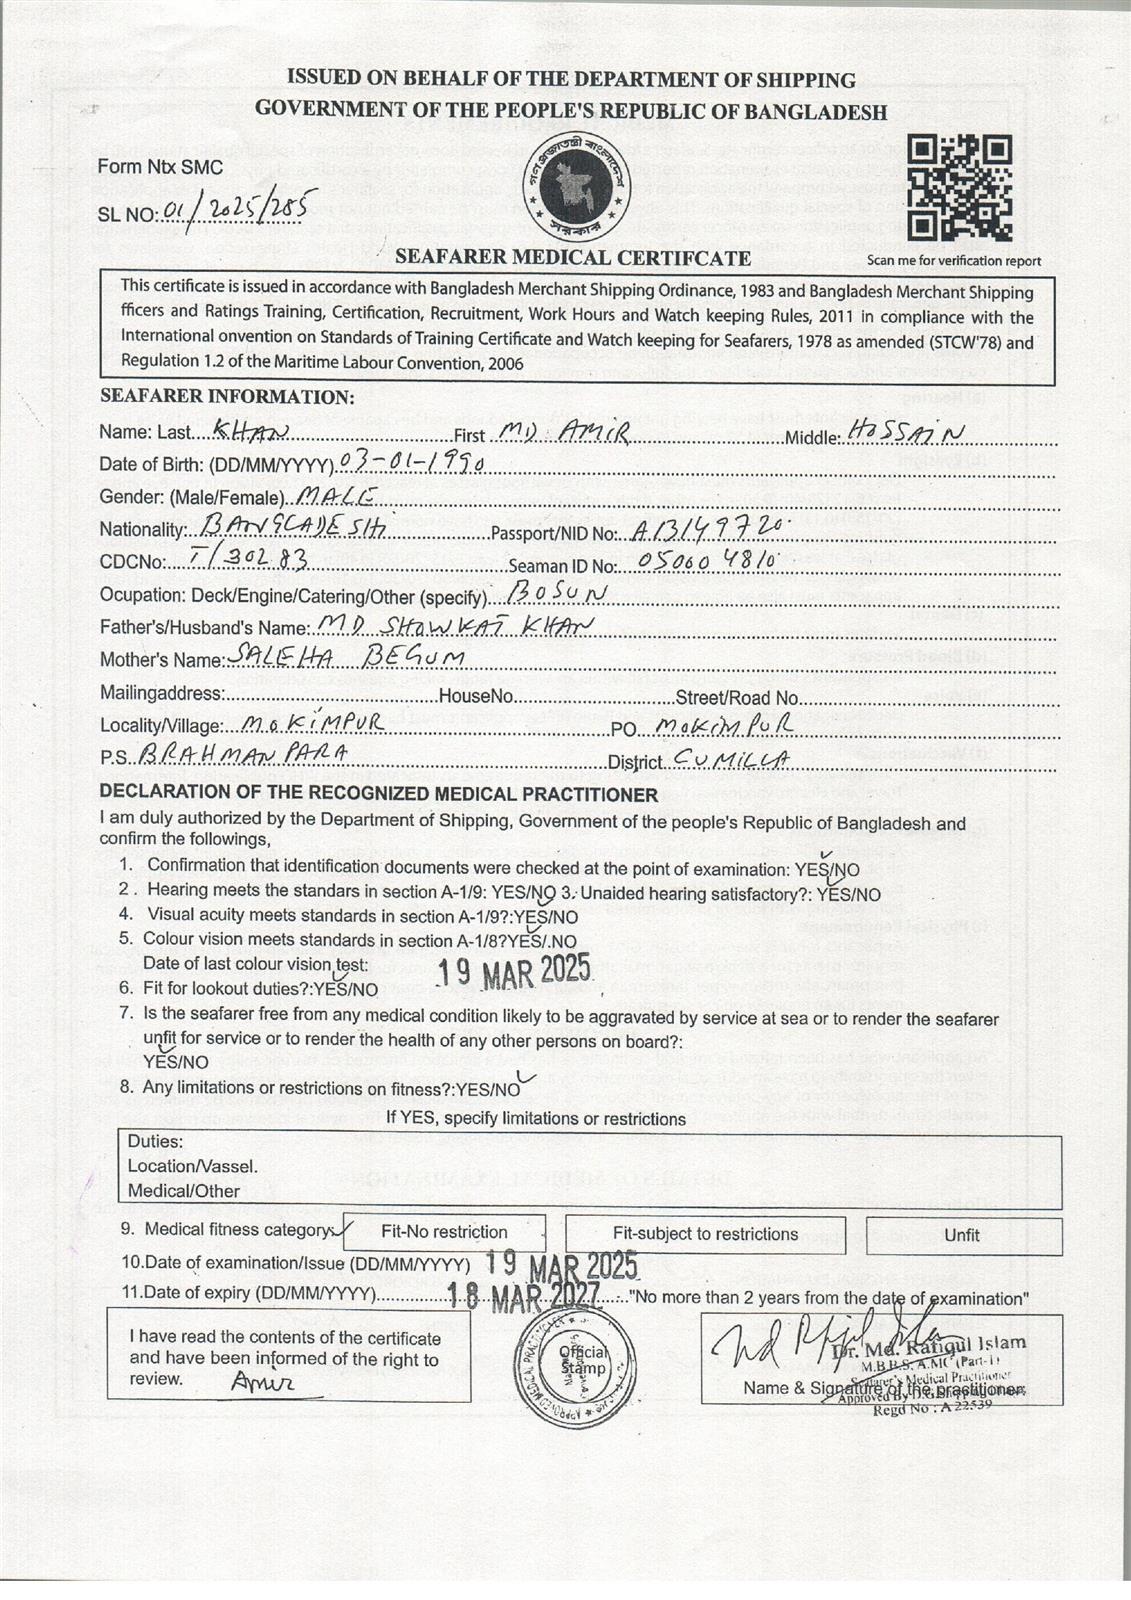 ISSUED ON BEHALF OF THE DEPARTMENT OF SHIPPING
GOVERNMENT OF THE PEOPLE'S REPUBLIC OF BANGLADESH
Form Ntx SMC
SL NO: 01/2025/285
গণপ্রজাতন্ত্রী বাংলাদেশ
সরকার
SEAFARER MEDICAL CERTIFCATE
Scan me for verification report
This certificate is issued in accordance with Bangladesh Merchant Shipping Ordinance, 1983 and Bangladesh Merchant Shipping
fficers and Ratings Training, Certification, Recruitment, Work Hours and Watch keeping Rules, 2011 in compliance with the
International onvention on Standards of Training Certificate and Watch keeping for Seafarers, 1978 as amended (STCW'78) and
Regulation 1.2 of the Maritime Labour Convention, 2006
SEAFARER INFORMATION:
Name: Last KHAN First MD AMIR Middle: HOSSAIN
Date of Birth: (DD/MM/YYYY) 03-01-1990
Gender: (Male/Female) MALE
Nationality: BANGLADESHI Passport/NID No: A13149720
CDCNo: T/30283 Seaman ID No: 050604810
Ocupation: Deck/Engine/Catering/Other (specify) BOSUN
Father's/Husband's Name: MD SHOWKAT KHAN
Mother's Name: SALEHA BEGUM
Mailingaddress: HouseNo Street/Road No
Locality/Village: MOKIMPUR PO MOKIMPUR
P.S. BRAHMANPARA District CUMILLA
DECLARATION OF THE RECOGNIZED MEDICAL PRACTITIONER
I am duly authorized by the Department of Shipping, Government of the people's Republic of Bangladesh and
confirm the followings,
1. Confirmation that identification documents were checked at the point of examination: YES/NO
2 . Hearing meets the standars in section A-1/9: YES/NO 3. Unaided hearing satisfactory?: YES/NO
4. Visual acuity meets standards in section A-1/9?:YES/NO
5. Colour vision meets standards in section A-1/8?YES/.NO
Date of last colour vision test: 19 MAR 2025
6. Fit for lookout duties?:YES/NO
7. Is the seafarer free from any medical condition likely to be aggravated by service at sea or to render the seafarer
unfit for service or to render the health of any other persons on board?:
YES/NO
8. Any limitations or restrictions on fitness?:YES/NO
If YES, specify limitations or restrictions
Duties:
Location/Vassel.
Medical/Other
9. Medical fitness category Fit-No restriction Fit-subject to restrictions Unfit
10.Date of examination/Issue (DD/MM/YYYY) 19 MAR 2025
11.Date of expiry (DD/MM/YYYY) 18 MAR 2027 "No more than 2 years from the date of examination"
I have read the contents of the certificate
and have been informed of the right to
review. Amir
Official
Stamp
Dr. Md. Rafiqul Islam
M.B.B.S. A.MC (Part-1)
Seafarer's Medical Practitioner
Name & Signature of the practitioner
Regd No : A 22539